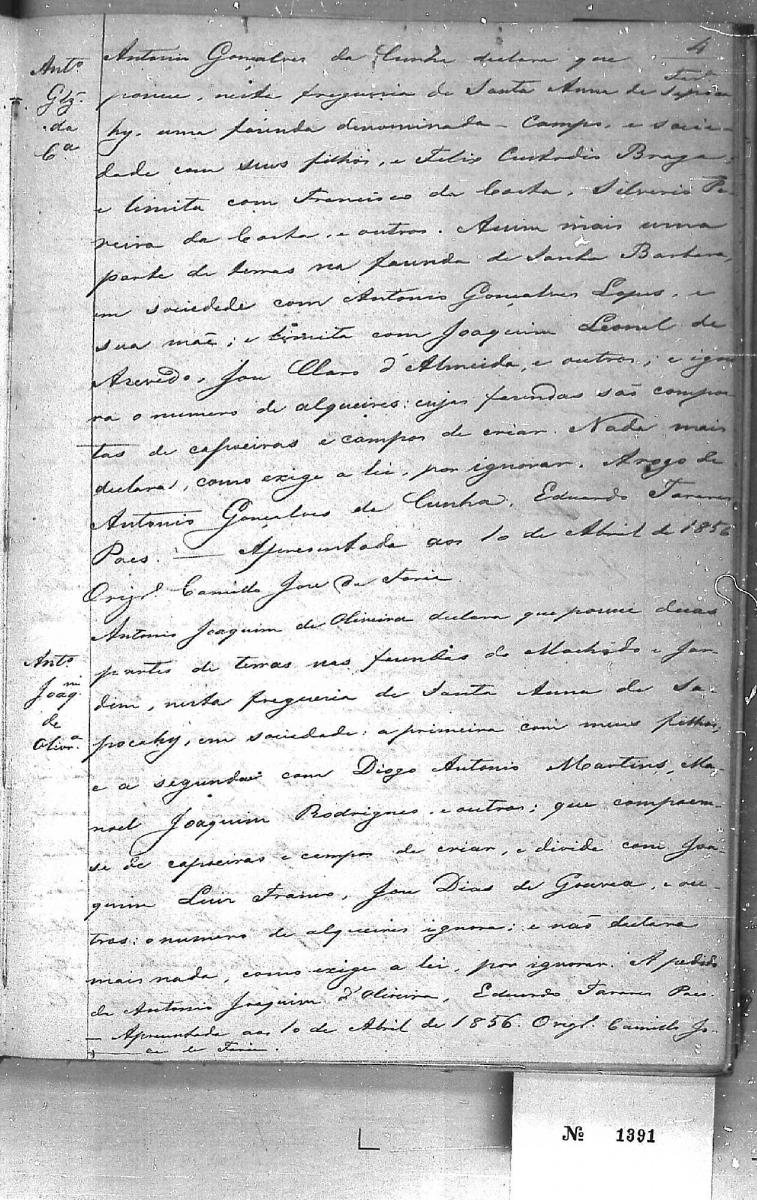 4
Antº
Glz̃
da
Cª
Antonio Gonçalves da Cunha declara que
possue, nesta freguesia de Santa Anna de Sapoca
hy, uma fazenda denominada - Campo, e socie-
dade com seus filhos, e Felix Custodio Braga,
e limita com Francisco da Costa, Silverio Pe-
reira da Costa, e outros. Assim mais uma
parte de terras na fazenda de Santa Barbara,
em sociedade com Antonio Gonçalves Lopes, e
sua mãe; e limita com Joaquim Leonel de
Azevedo, Jose Claro d'Almeida, e outros; e igno
ra o numero de alqueires: cujas fazendas são compos-
tas de capoeiras e campos de criar. Nada mais
declara, como exige a lei, por ignorar. Arogo de
Antonio Gonçalves da Cunha, Eduardo Tavares
Paes. — Apresentada aos 10 de Abril de 1856
Orig.l Camillo Jose de Faria
Antº
Joaqm
de
Olivrª
Antonio Joaquim de Oliveira declara que possue duas
partes de terras nas fazendas do Machado e Jar
dim, nesta freguesia de Santa Anna de Sa-
pocahy, em sociedade: a primeira com meus filhos,
e a segunda com Diogo Antonio Martins, Ma-
noel Joaquim Rodrigues, e outros; que compoem-
se de capoeiras e campos de criar, e divide com Joa-
quim Luiz Franco, Jose Dias de Gouvea, e ou-
tros: o numero de alqueires ignora; e não declara
mais nada, como exige a lei, por ignorar. A pedido
de Antonio Joaquim d'Oliveira, Eduardo Tavares Paes.
— Apresentada aos 10 de Abril de 1856. Orig.l Camillo Jo-
se de Faria.
Nº 1391